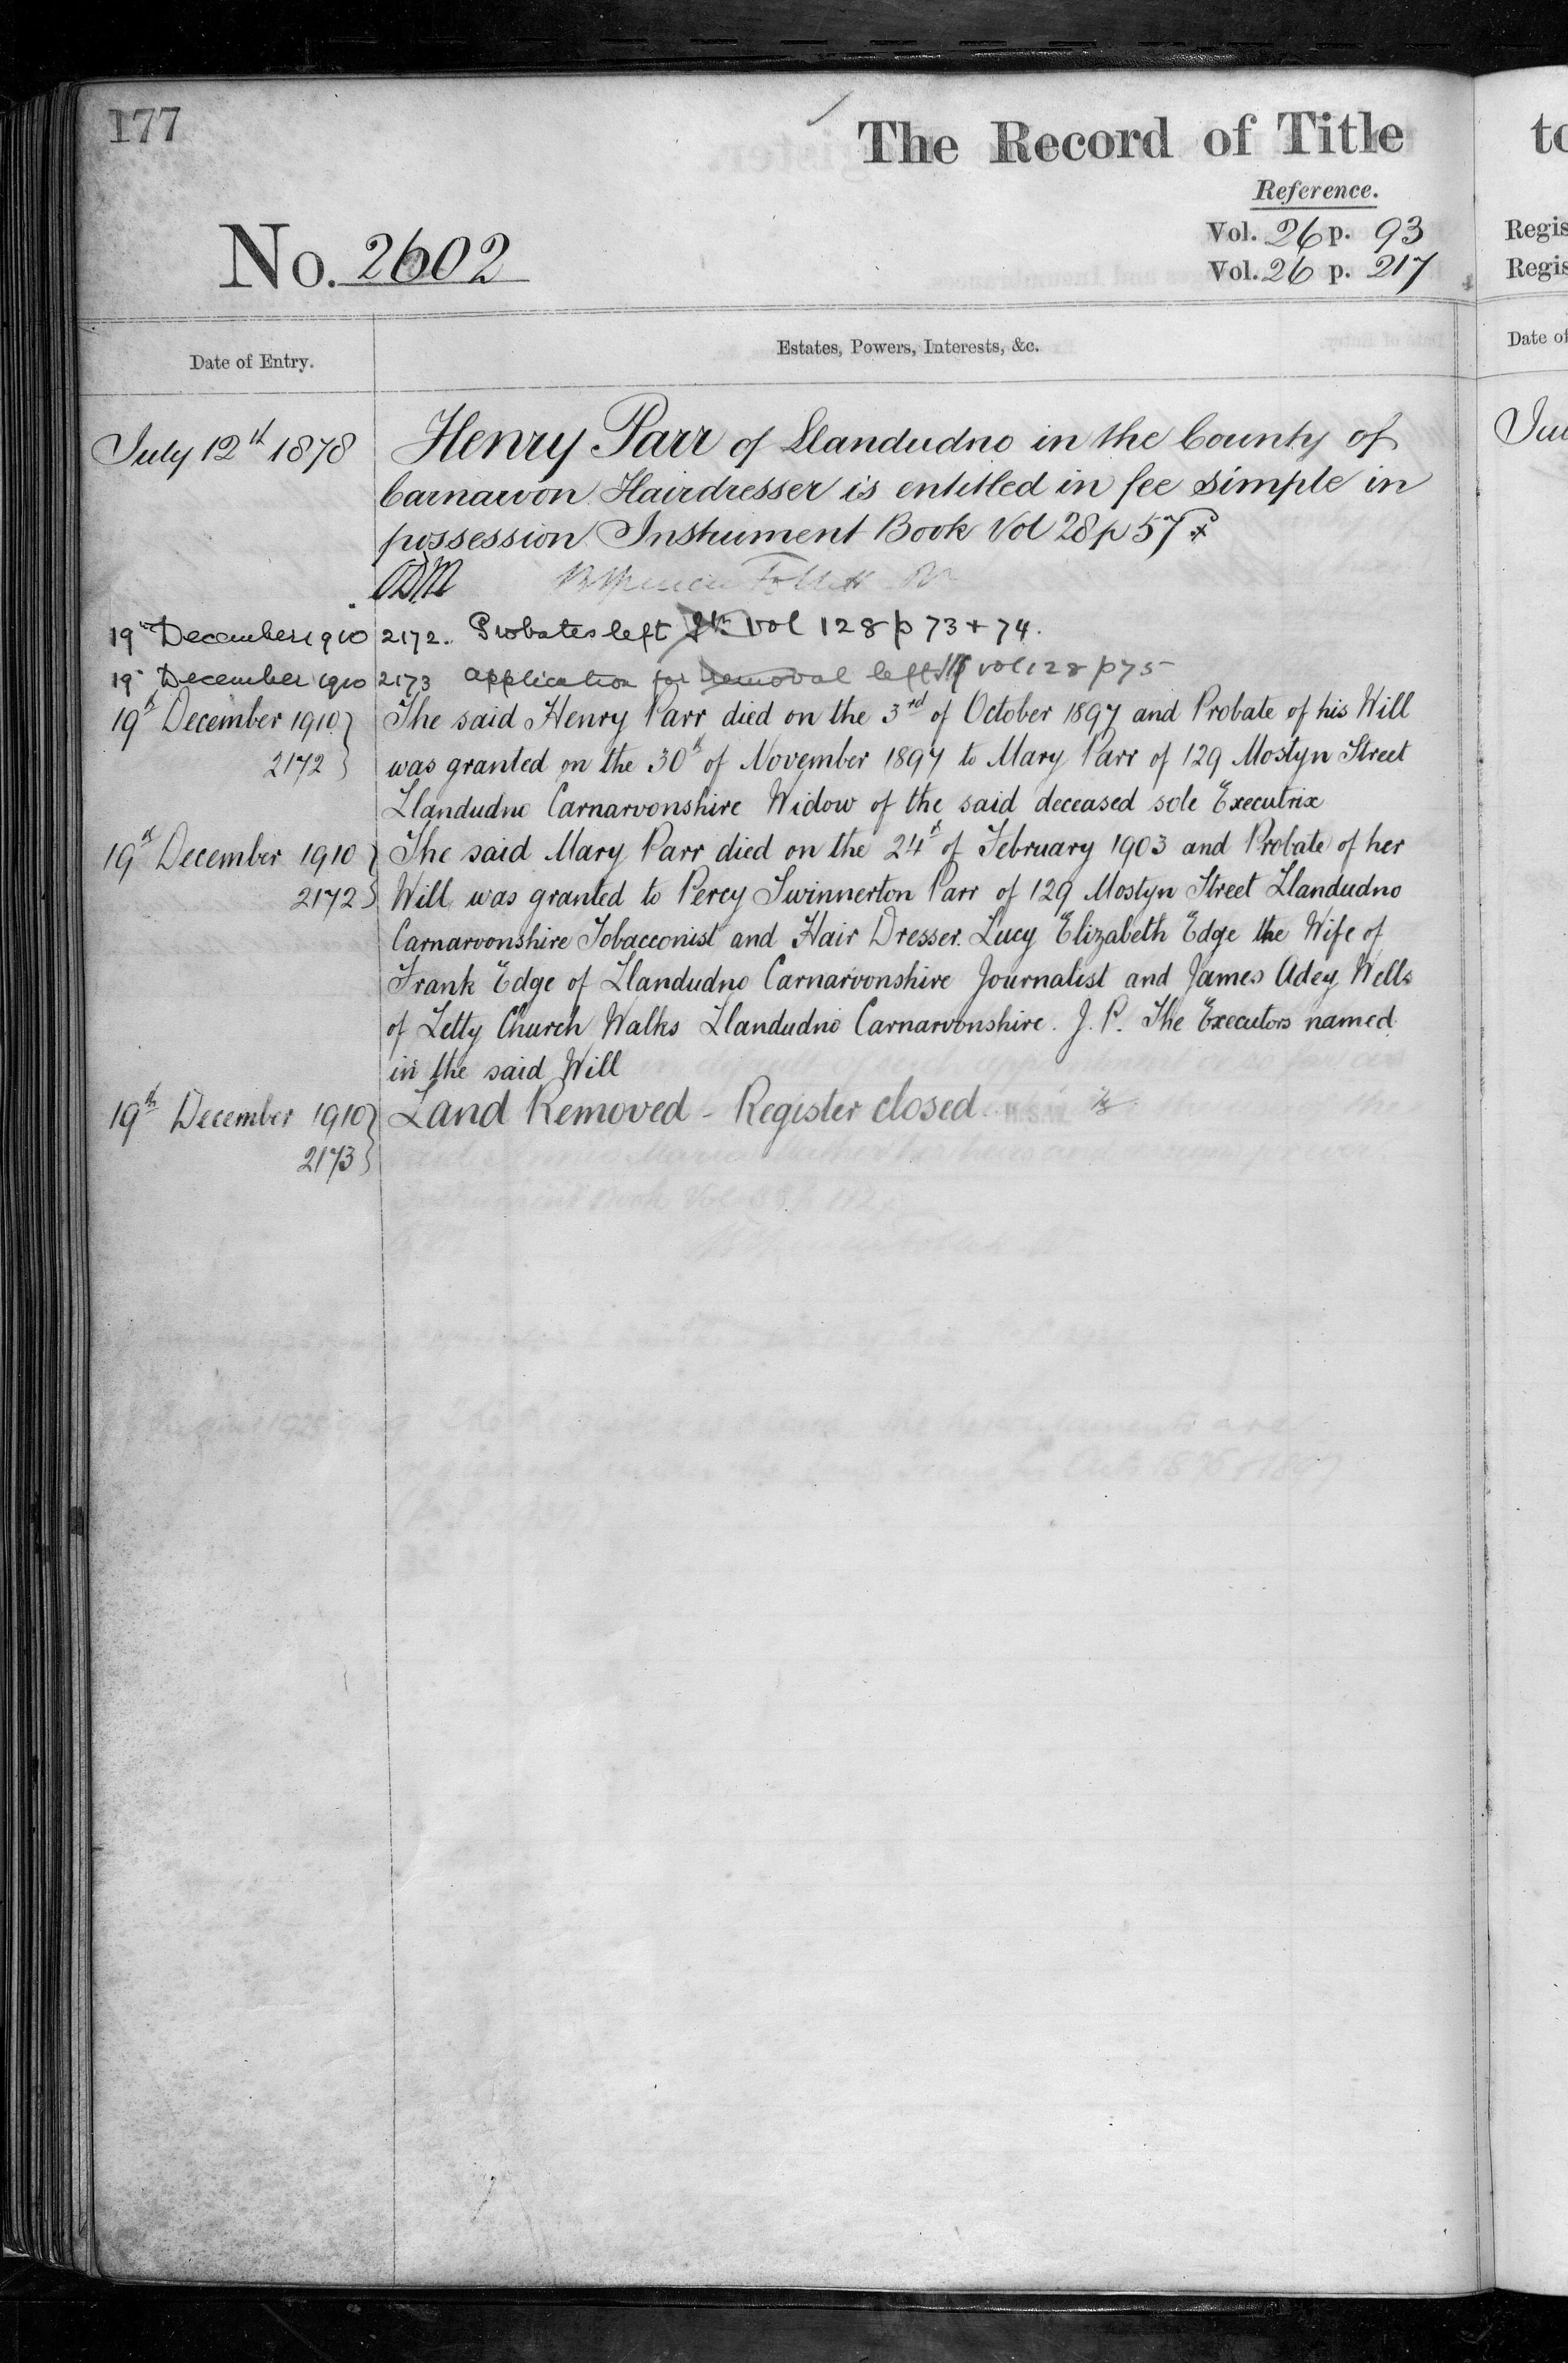 177
The Record of Title
Reference.
No. 2602
Vol. 26 p. 93
Vol. 26 p. 217
Date of Entry.
Estates, Powers, Interests, &c.
July 12th 1878
Henry Parr of Llandudno in the County of
Carnarvon Hairdresser is entitled in fee simple in
possession Instrument Book Vol 28 p 57
19th December 1910 2172. Probates left vol 128 p 73 + 74.
19th December 1910 2173 application for removal left vol 128 p 75
19th December 1910 } The said Henry Parr died on the 3rd of October 1897 and Probate of his Will
2172 } was granted on the 30th of November 1897 to Mary Parr of 129 Mostyn Street
Llandudno Carnarvonshire Widow of the said deceased sole Executrix
19th December 1910 } The said Mary Parr died on the 24th of February 1903 and Probate of her
2172 } Will was granted to Percy Swinnerton Parr of 129 Mostyn Street Llandudno
Carnarvonshire Tobacconist and Hair Dresser. Lucy Elizabeth Edge the Wife of
Frank Edge of Llandudno Carnarvonshire Journalist and James Adey Wells
of Letty Church Walks Llandudno Carnarvonshire. J. P. The Executors named
in the said Will
19th December 1910 } Land Removed - Register closed
2173 }
to
Regis
Regis
Date of